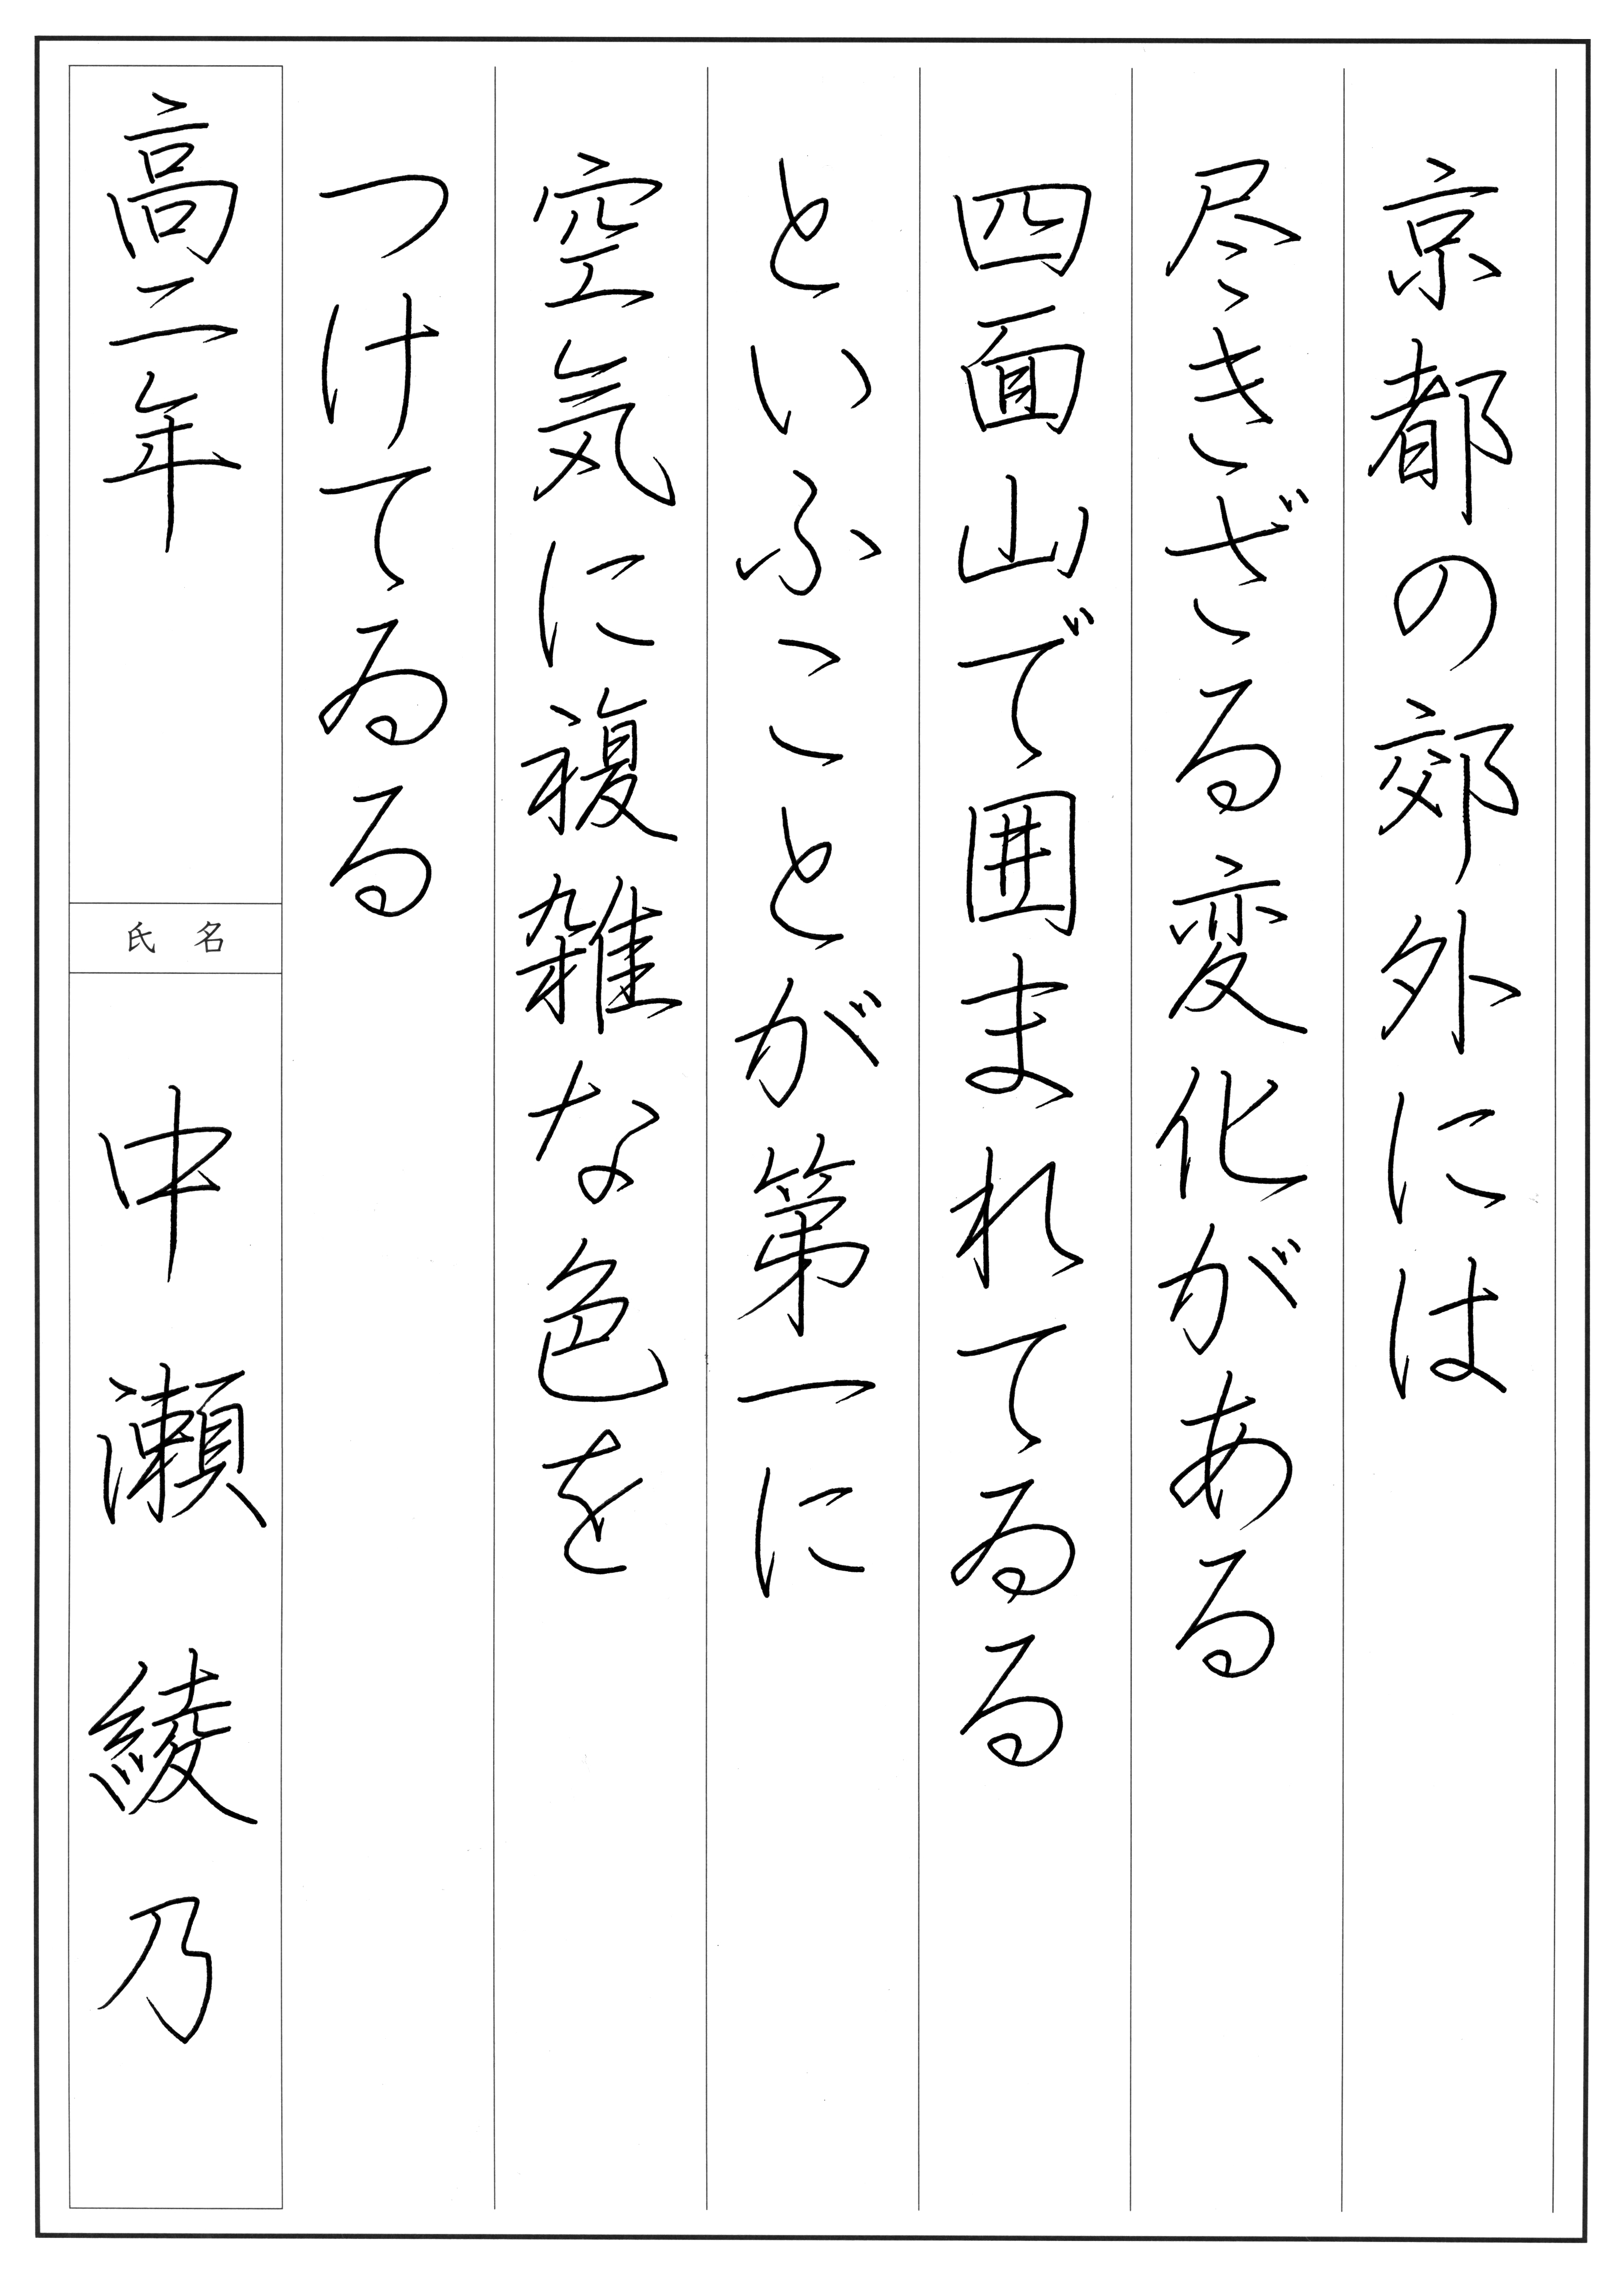 京都の郊外には
尽きざる変化がある
四面山で囲まれてゐる
といふことが第一に
空気に複雑な色を
つけてゐる
高二年
氏名
中瀬綾乃